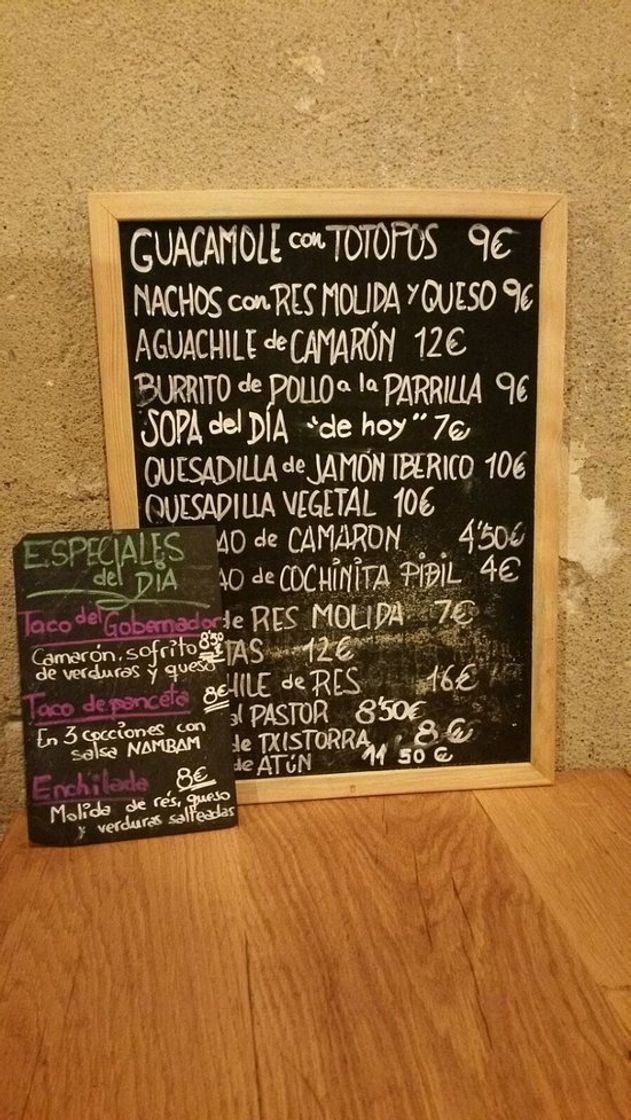 GUACAMOLE con TOTOPOS 9€
NACHOS con RES MOLIDA Y QUESO 9€
AGUACHILE de CAMARÓN 12€
BURRITO de POLLO a la PARRILLA 9€
SOPA del DÍA "de hoy" 7€
QUESADILLA de JAMÓN IBERICO 10€
QUESADILLA VEGETAL 10€
AO de CAMARON 4'50€
AO de COCHINITA PIBIL 4€
de RES MOLIDA 7€
TAS 12€
HILE de RES 16€
al PASTOR 8'50€
de TXISTORRA 8€
de ATÚN 11 50€
ESPECIALES
del DÍA
Taco del Gobernador 8'50€
Camarón, sofrito
de verduras y queso
Taco de panceta 8€
En 3 cocciones con
salsa ÑAMBAM
Enchilada 8€
Molida de rés, queso
y verduras salteadas